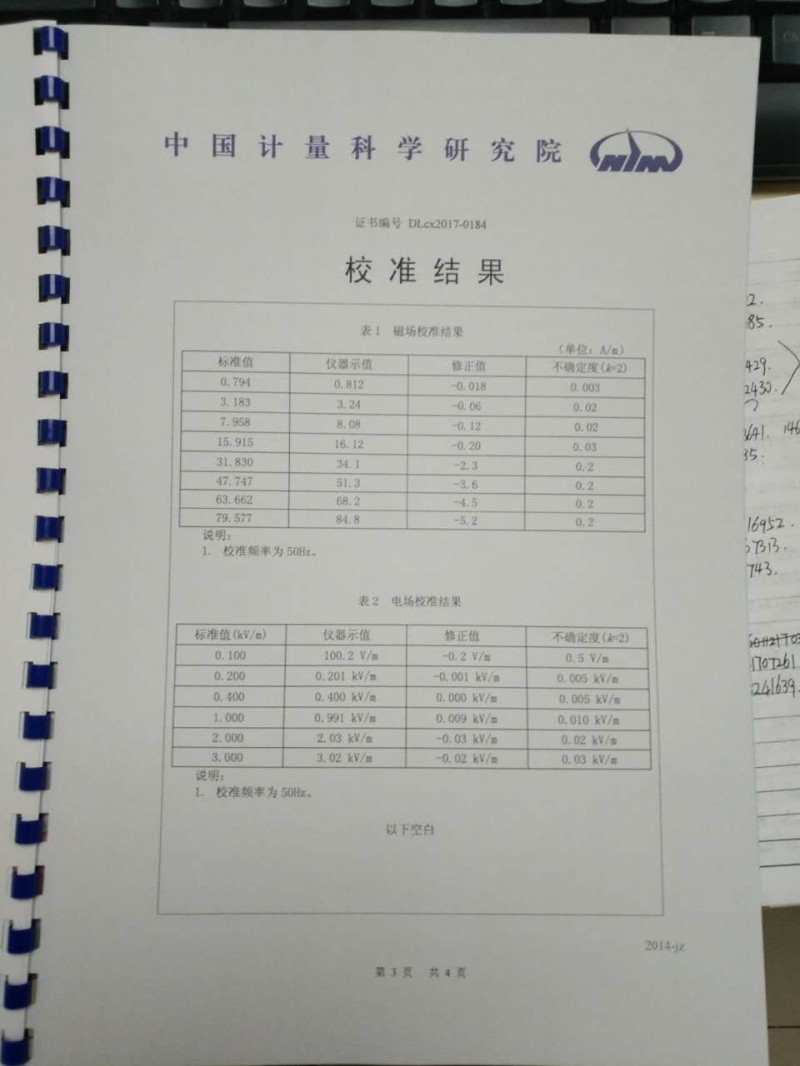 中国计量科学研究院 NIM
证书编号 DLcx2017-0184
校准结果
表1 磁场校准结果
(单位：A/m)
标准值 仪器示值 修正值 不确定度(k=2)
0.794 0.812 -0.018 0.003
3.183 3.24 -0.06 0.02
7.958 8.08 -0.12 0.02
15.915 16.12 -0.20 0.03
31.830 34.1 -2.3 0.2
47.747 51.3 -3.6 0.2
63.662 68.2 -4.5 0.2
79.577 84.8 -5.2 0.2
说明：
1. 校准频率为50Hz。
表2 电场校准结果
标准值(kV/m) 仪器示值 修正值 不确定度(k=2)
0.100 100.2 V/m -0.2 V/m 0.5 V/m
0.200 0.201 kV/m -0.001 kV/m 0.005 kV/m
0.400 0.400 kV/m 0.000 kV/m 0.005 kV/m
1.000 0.991 kV/m 0.009 kV/m 0.010 kV/m
2.000 2.03 kV/m -0.03 kV/m 0.02 kV/m
3.000 3.02 kV/m -0.02 kV/m 0.03 kV/m
说明：
1. 校准频率为50Hz。
以下空白
2014-jz
第 3 页 共 4 页
2.
85.
429.
2430.
35.
16952.
743.
1707261
241639.